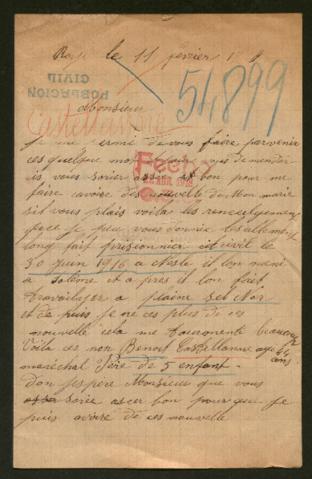 le 11 fevrier
POBLACION
CIVIL
54899
Monsieur
Castellanne
je me de vous faire parvenir
ces quelque mot
si vous serier assez bon pour me
faire savoire des nouvelle de Mon marie
sil vous plais voila les renseignement
que je peu vous donnée les allement
long fait prisionnier civil le
30 juin 1916 a Nesle il lon meni
a et a pres il lon fait
travailyer a
et de puis je ne ces plus de ces
nouvelle cela me tourmente beaucoup
Voila ces non Benoit Castellanne age 44
ans
maréchal Père de 5 enfant.
don jespere Monsieur que vous
serie assez bon pour que je
puis avoire de ces nouvelle